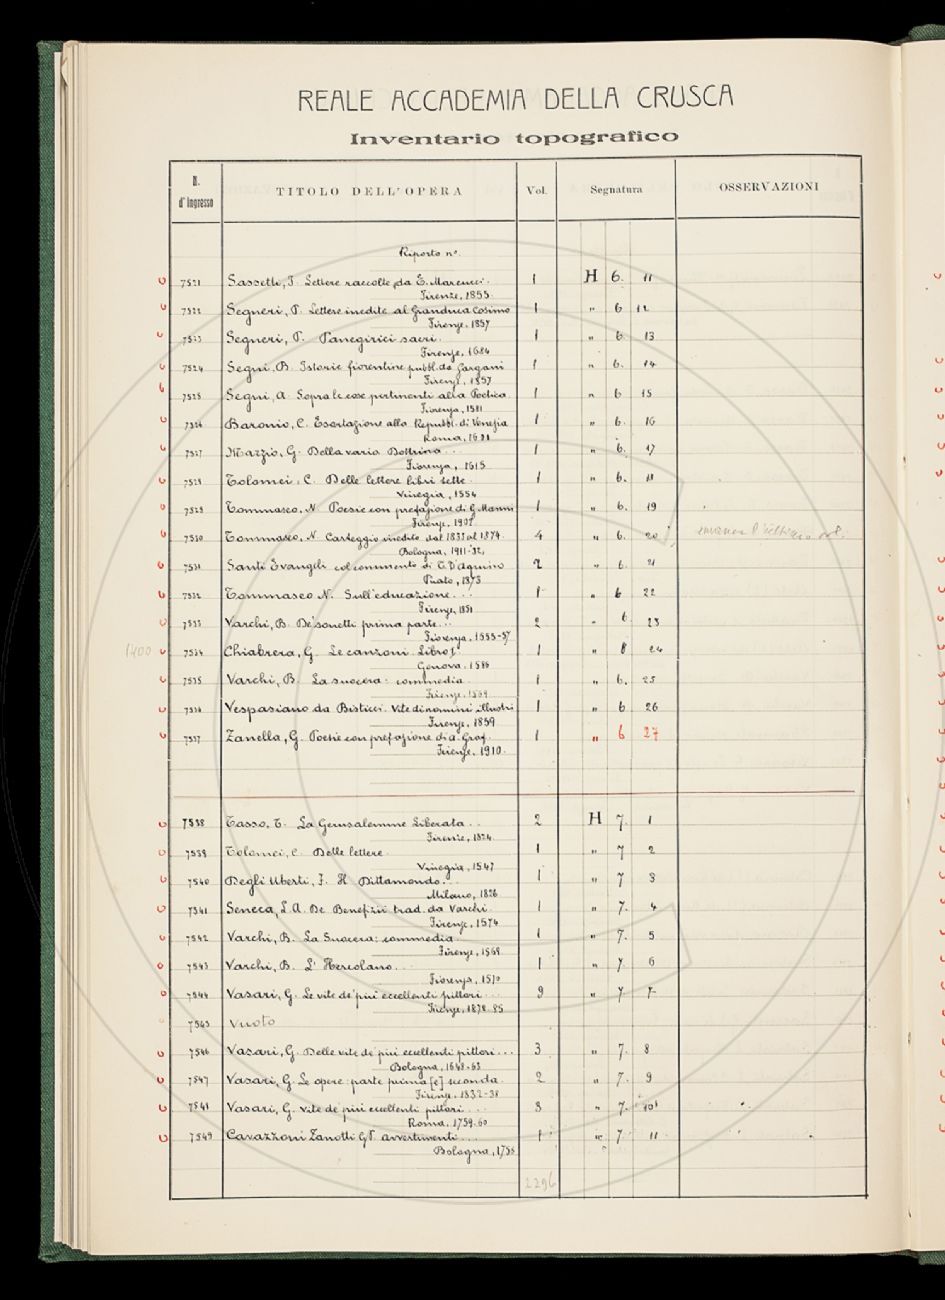 REALE ACCADEMIA DELLA CRUSCA
Inventario topografico
N. d'Ingresso TITOLO DELL'OPERA Vol. Segnatura OSSERVAZIONI
Riporto n°.
7521 Sassetti, F. Lettere raccolte da E. Marcucci. 1 H 6. 11
Firenze, 1855
7522 Segneri, P. Lettere inedite al Granduca Cosimo 1 " 6 12
Firenze, 1857
7523 Segneri, P. Panegirici sacri. 1 " 6 13
Firenze, 1684
7524 Segni, B. Istorie fiorentine pubbl. da Gargani 1 " 6. 14
Firenze, 1857
7525 Segni, A. Sopra le cose pertinenti alla Poetica 1 " 6 15
Fiorenza, 1581
7526 Baronio, C. Esortazione alla Repubbl. di Venezia 1 " 6. 16
Roma,
7527 Marzio, G. Della varia Dottrina... 1 " 6. 17
Fiorenza, 1615
7528 Tolomei, C. Delle lettere libri sette. 1 " 6. 18
Vinegia, 1554
7529 Tommaseo, N. Poesie con prefazione di G. Manni 1 " 6. 19
Firenze, 1902
7530 Tommaseo, N. Carteggio inedito dal 1833 al 1874. 4 " 6. 20
Bologna, 1911-32,
7531 Santi Evangeli col commento di T. D'Aquino 2 " 6. 21
Prato, 1873
7532 Tommaseo N. Sull'educazione... 1 " 6 22
Firenze, 1851
7533 Varchi, B. De' sonetti prima parte... 2 " 6 23
Fiorenza, 1555-57
1400 7534 Chiabrera, G. Le canzoni. Libro 1 " 6 24
Genova, 1586
7535 Varchi, B. La suocera: commedia. 1 " 6. 25
Firenze, 1569
7536 Vespasiano da Bisticci. Vite di uomini illustri 1 " 6 26
Firenze, 1859
7537 Zanella, G. Poesie con prefazione di A. Graf. 1 " 6 27
Firenze, 1910.
7538 Tasso, T. La Gerusalemme Liberata.. 2 H 7. 1
Firenze, 1824
7539 Tolomei, C. Delle lettere. 1 " 7 2
Vinegia, 1547
7540 Degli Uberti, F. Il Dittamondo... 1 " 7 3
Milano, 1826
7541 Seneca, L.A. De Benefizii trad. da Varchi. 1 " 7. 4
Firenze, 1574
7542 Varchi, B. La Suocera: commedia. 1 " 7. 5
Firenze, 1569
7543 Varchi, B. L'Hercolano... 1 " 7. 6
Fiorenza, 1570
7544 Vasari, G. Le vite de' più eccellenti pittori... 9 " 7 7
Firenze, 1878-85
7545 Vuoto
7546 Vasari, G. Delle vite de' più eccellenti pittori... 3 " 7. 8
Bologna, 1648-63
7547 Vasari, G. Le opere: parte prima [e] seconda. 2 " 7. 9
Firenze, 1832-38
7548 Vasari, G. Vite de' più eccellenti pittori... 3 " 7. 10
Roma, 1759-60
7549 Cavazzoni Zanotti G.P. Avvertimenti... 1 " 7 11
Bologna,
2296